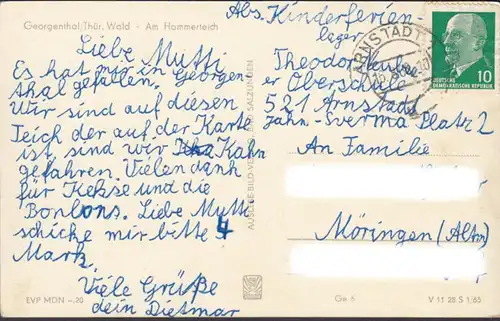 Georgenthal/Thür. Wald - Am Hammerteich
Liebe Mutti
Es hat mir in Georgen-
thal gefallen.
Wir sind auf diesen
Teich der auf der Karte
ist, sind wir Kahn
gefahren. Vielen dank
für Kekse und die
Bonbons. Liebe Mutti
schicke mir bitte 4
Mark.
Viele Grüße
dein Dietmar
EVP MDN -,20
AUSLESE-BILD-VERLAG BAD SALZUNGEN
Abs. Kinderferien-
lager
Theodor
er Oberschule
521 Arnstadt
Jahn-Sverma Platz 2
An Familie
Möringen (Altm)
Ge 6
V 11 28 S 1/63
ARNSTADT
10
DEUTSCHE
DEMOKRATISCHE REPUBLIK